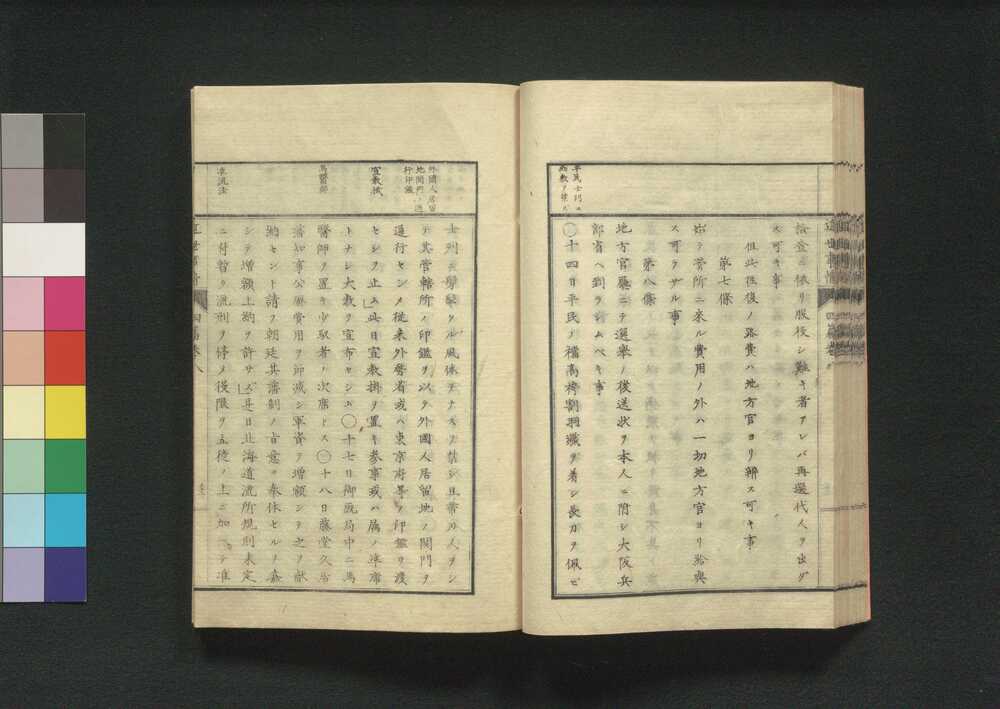 給金ニ依リ服役シ難キ者アレバ再選代人ヲ出ダ
ス可キ事
但此往復ノ路費ハ地方官ヨリ辨ス可キ事
第七條
出テ營所ニ來ル費用ノ外ハ一切地方官ヨリ給與
ス可ラサル事
第八條
地方官廳ニテ選擧ノ後送状ヲ本人ニ附シ大阪兵
部省ヘ到ラシムベキ事
〇十四日平民ノ襠高袴割羽織ヲ着シ長刀ヲ佩ビ
士列ニ擬ス
士列ニ擬タル風体ヲナスヲ禁シ且帶刀人ヲシ
テ其管轄所ノ印鑑ヲ以テ外國人居留地ノ関門ヲ
通行セシメ從来外務省或ハ東京府等ノ印鑑ヲ渡
セシヲ止ム此日宣教掛ヲ置キ参事或ハ属ノ准席
トナシ大教ヲ宣布セシム〇十七日御厩局中ニ馬
醫師ヲ置キ少馭者ノ次席トス〇十八日藤堂久居
藩知事公廨費用ヲ節減シ軍資ヲ増額シテ之ヲ献
納セント請フ朝廷其藩制ノ旨意ヲ奉体セルヲ嘉
シテ増額上納ヲ許サズ是日北海道流所規則未定
ニ付暫ク流刑ヲ停メ役限ヲ五徒ノ上ニ加ヘテ准
外國人居留
地関門ノ通
行印鑑
宣教掛
馬醫師
准流法
近世事情
四篇巻八